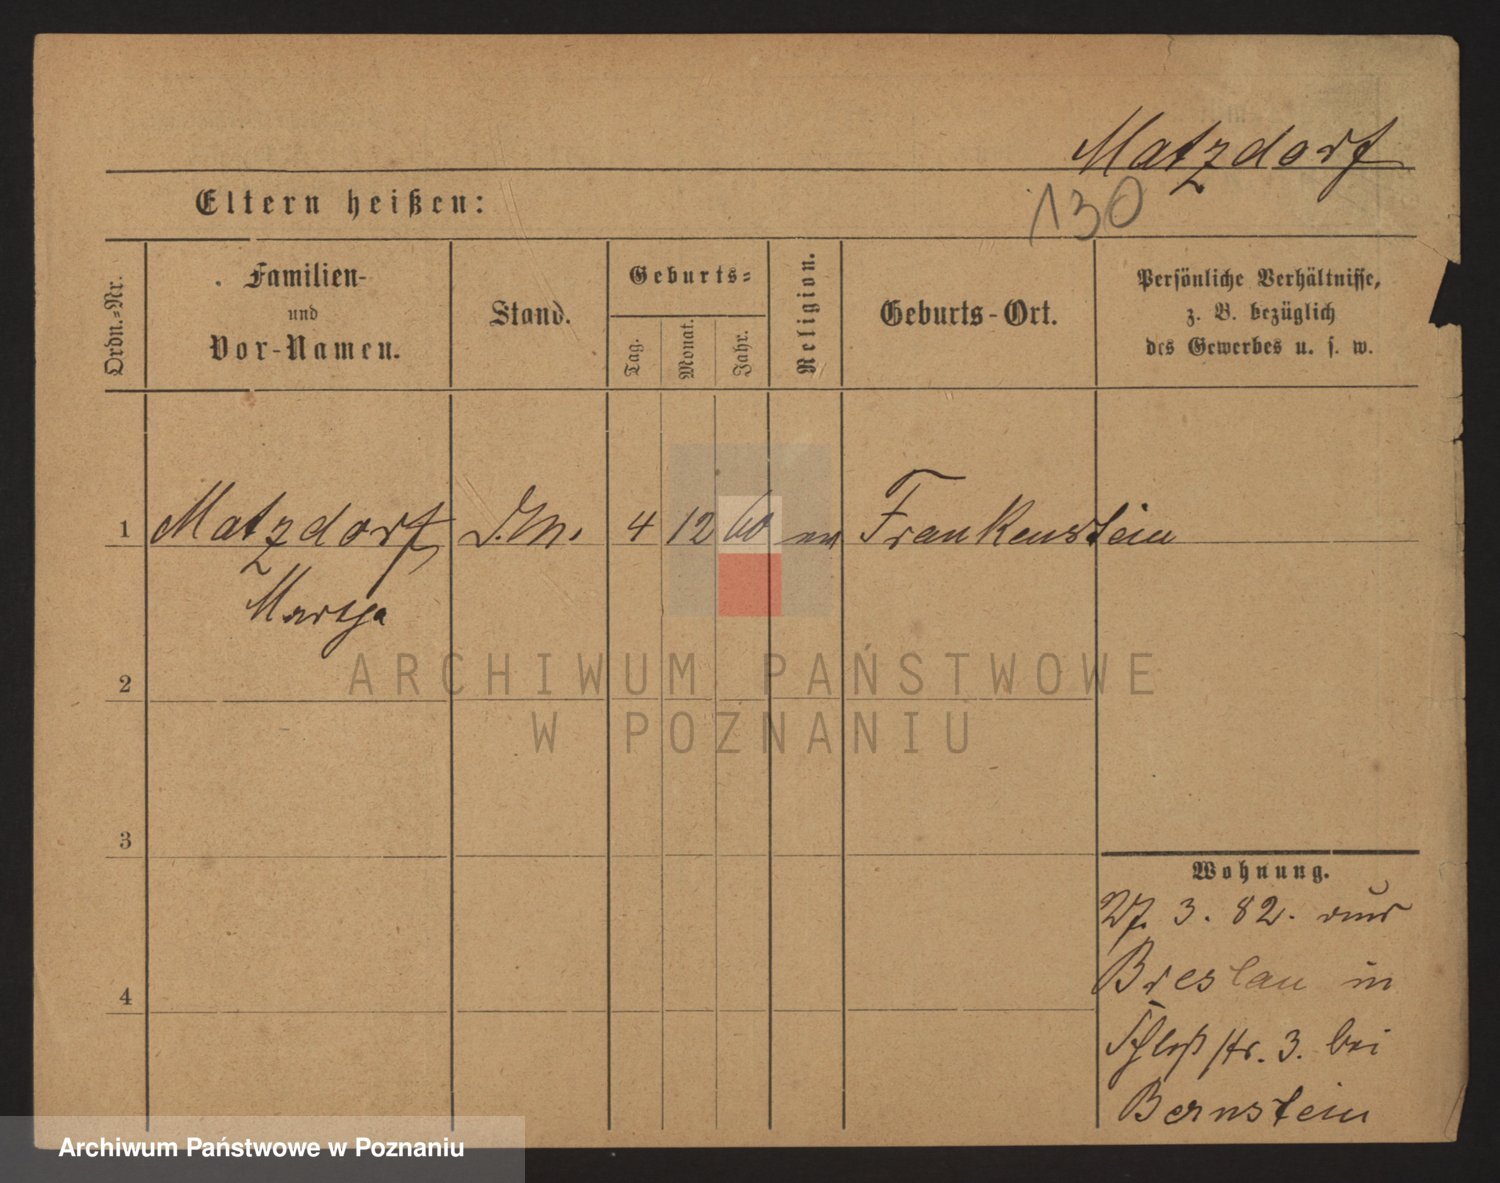 Matzdorf
130
Eltern heißen:
Ordn.-Nr.
Familien-
und
Vor-Namen.
Stand.
Geburts-
Tag.
Monat.
Jahr.
Religion.
Geburts-Ort.
Persönliche Verhältnisse,
z. B. bezüglich
des Gewerbes u. s. w.
1 Matzdorf, D. M. 4 12 60 ev Frankenstein
Martha
2
ARCHIWUM PAŃSTWOWE
W POZNANIU
3
Wohnung.
27. 3. 82. aus
Breslau in
4
Schloßstr. 3. bei
Bernstein
Archiwum Państwowe w Poznaniu